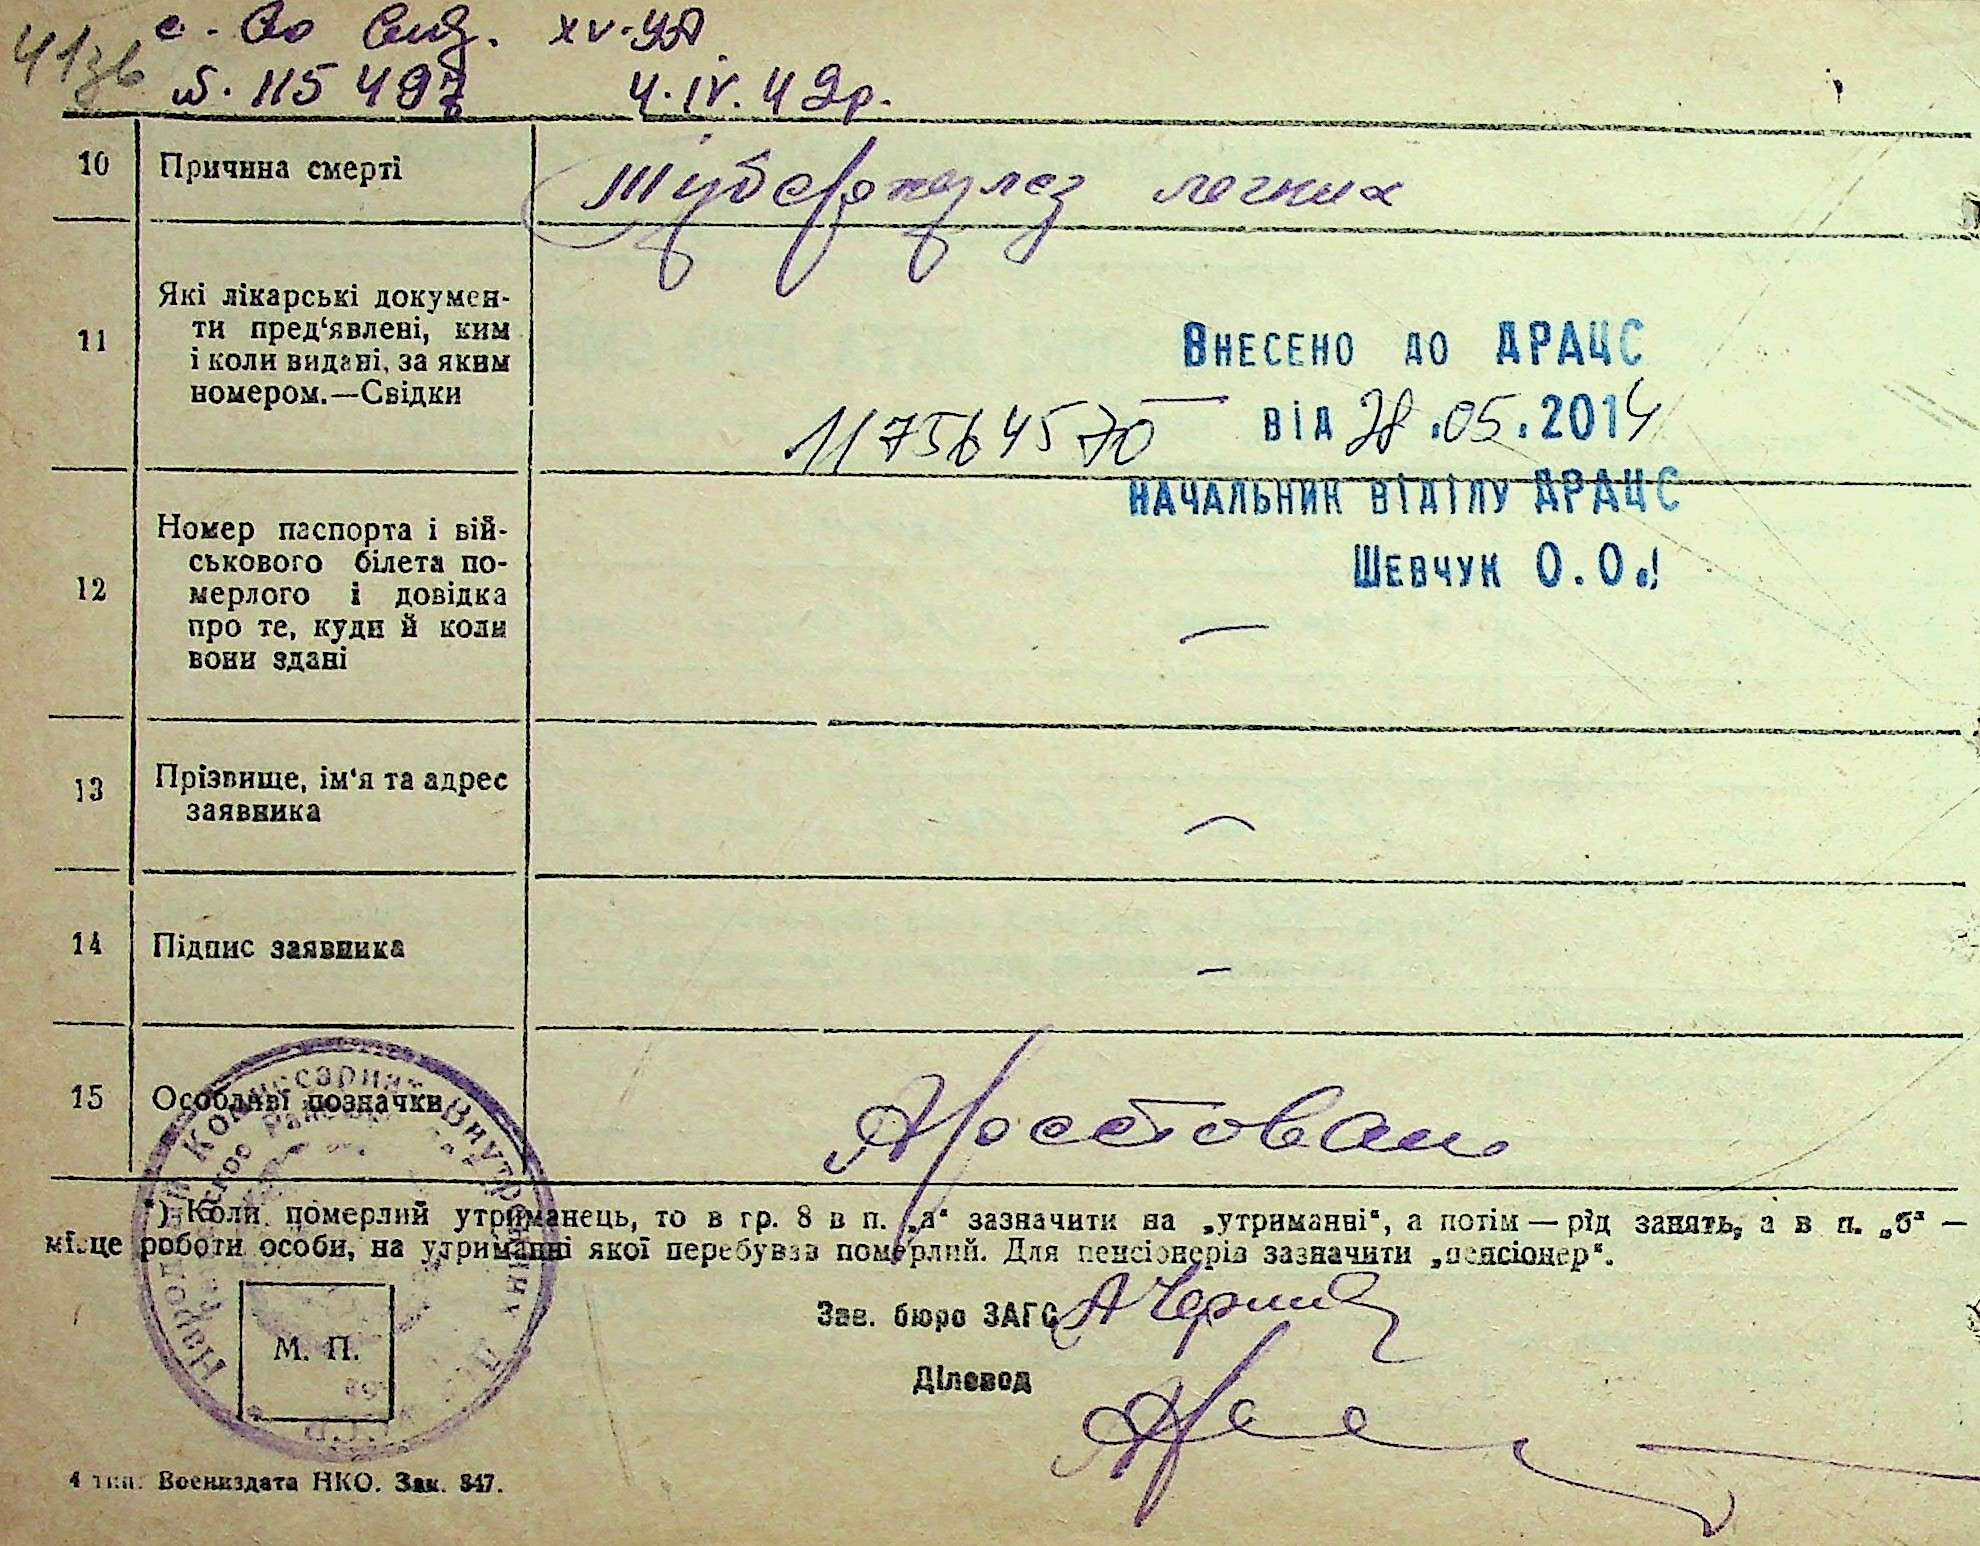 413в
с-во
№ 115497 4.IV.42р.
10 Причина смерті туберкулез легких
11 Які лікарські докумен-
ти пред‘явлені, ким
і коли видані, за яким
номером.—Свідки
Внесено до ДРАЦС
117564570 від 28.05.2014
начальник відділу ДРАЦС
Шевчук О.О.
12 Номер паспорта і вій-
ськового білета по-
мерлого і довідка
про те, куди й коли
вони здані
—
13 Прізвище, ім‘я та адрес
заявника
—
14 Підпис заявника
—
15 Особливі позначки Арестован
*) Коли померлий утриманець, то в гр. 8 в п. „а“ зазначити на „утриманні“, а потім — рід занять, а в п. „б“ —
місце роботи особи, на утриманні якої перебував померлий. Для пенсіонерів зазначити „пенсіонер“.
Народний Комиссариат Внутренних Дел
Зав. бюро ЗАГС
М. П.
Діловод
4 тип. Воениздата НКО. Зак. 847.